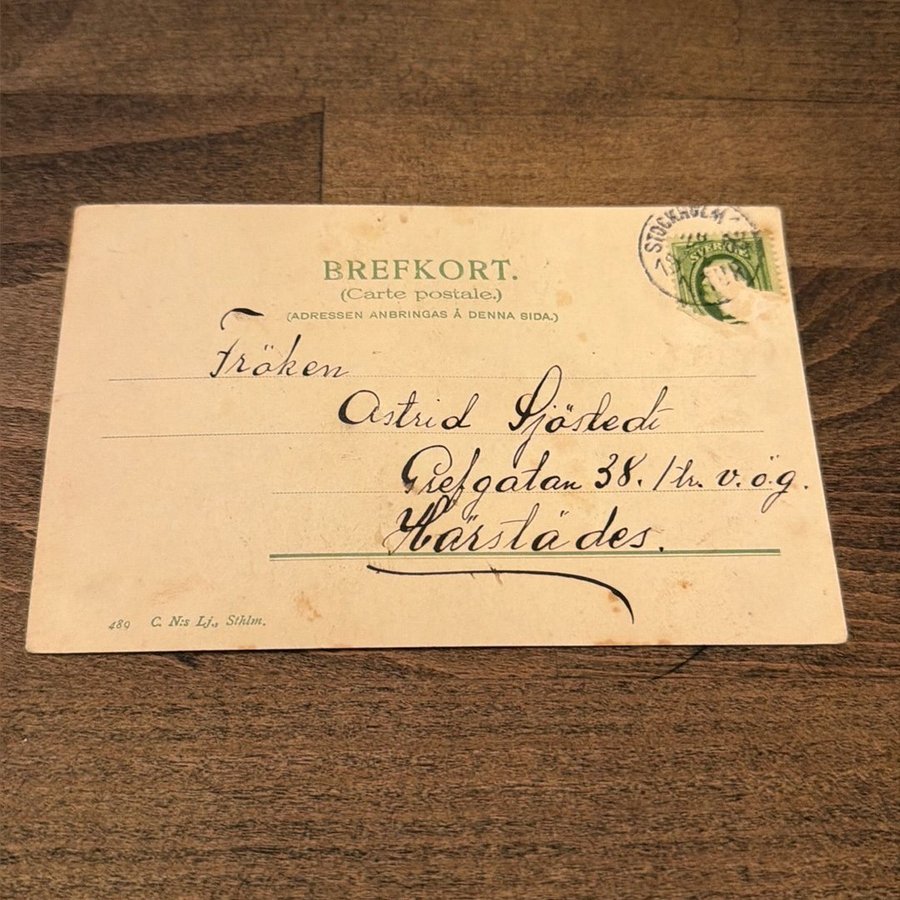 STOCKHOLM
SVERIGE
BREFKORT.
(Carte postale.)
(ADRESSEN ANBRINGAS Å DENNA SIDA.)
Fröken
Astrid Sjöstedt
Grefgatan 38. 1 tr. v. ö. g.
Härstädes.
489 C. N:s Lj., Sthlm.